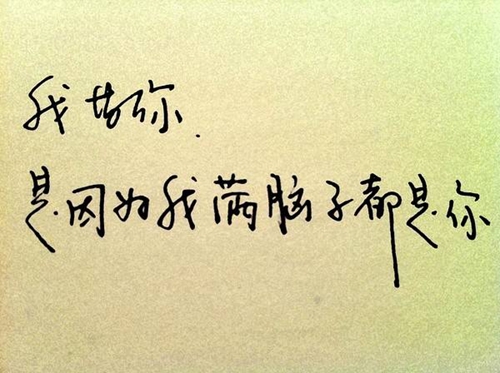 我梦你.
是因为我满脑子都是你